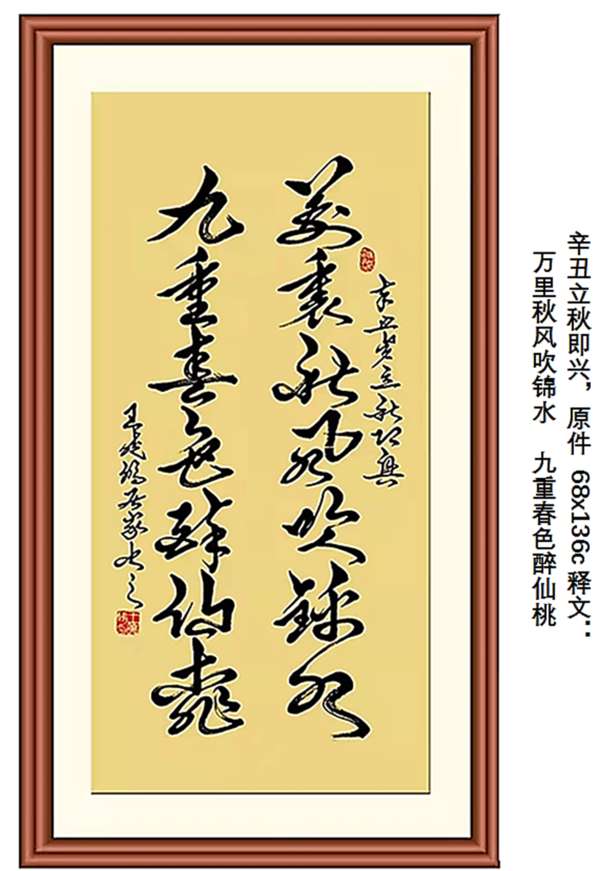 辛丑立秋即兴，原件 68x136c 释文：
万里秋风吹锦水　九重春色醉仙桃
辛丑岁立秋即兴
万里秋风吹锦水
九重春色醉仙桃